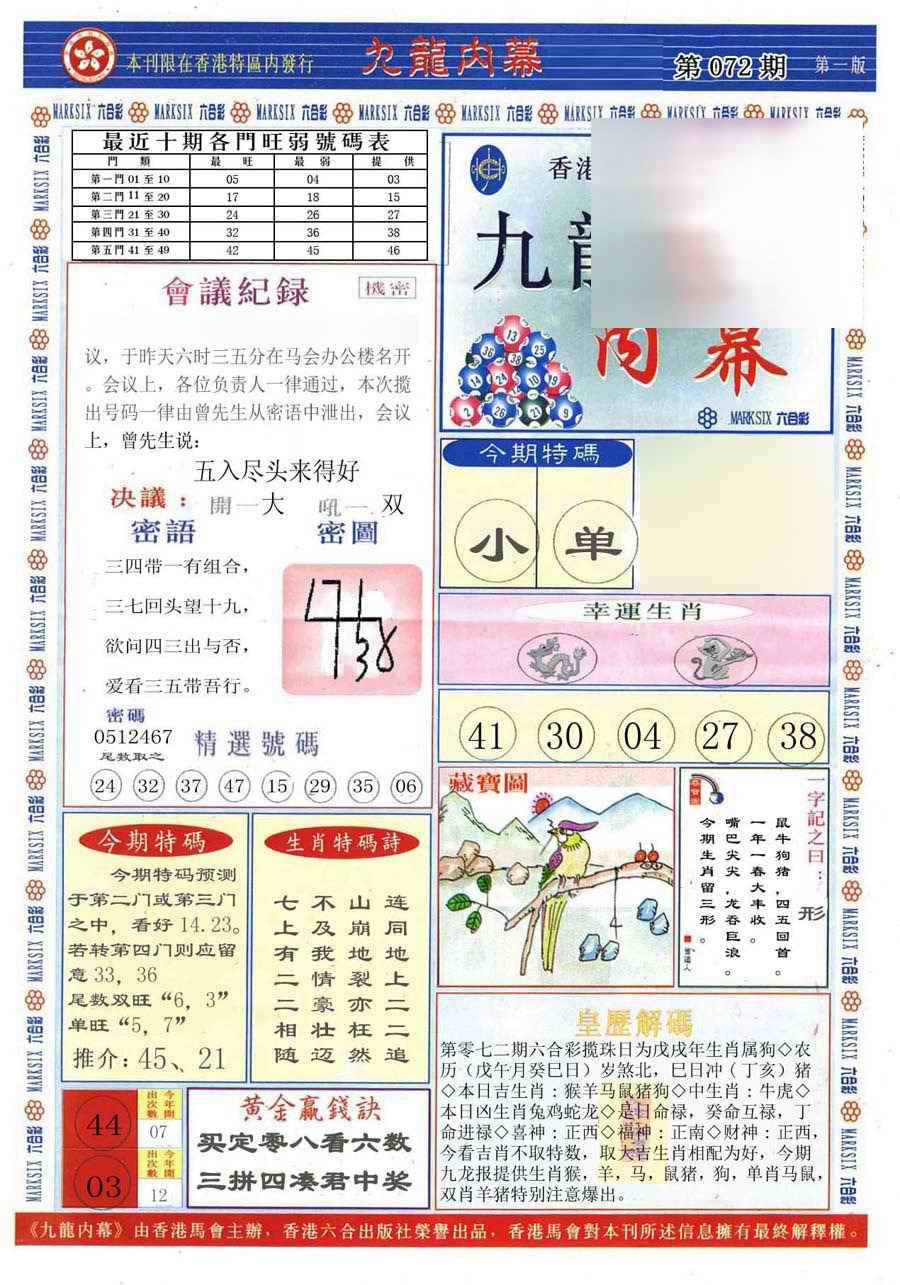 本刊限在香港特區内發行
九龍内幕
第072期
第一版
MARKSIX 六合彩
最近十期各門旺弱號碼表
門類 最旺 最弱 提供
第一門01至10 05 04 03
第二門11至20 17 18 15
第三門21至30 24 26 27
第四門31至40 32 36 38
第五門41至49 42 45 46
會議紀録
機密
议，于昨天六时三五分在马会办公楼名开
。会议上，各位负责人一律通过，本次搅
出号码一律由曾先生从密语中泄出，会议
上，曾先生说：
五入尽头来得好
决議：開一大 吼一双
密語
密圖
三四带一有组合，
三七回头望十九，
欲问四三出与否，
爱看三五带吾行。
38
密碼
0512467
尾数取之
精選號碼
24 32 37 47 15 29 35 06
香港
九
内幕
13
36 38 25
14 24 10 19
2 26 21 9
MARKSIX 六合彩
今期特碼
小 单
幸運生肖
41 30 04 27 38
藏寶圖
一字記之曰：形
鼠牛狗猪，四五回首。
一年一春大丰收。
嘴巴尖尖，龙吞巨浪。
今期生肖留三形。
今期特码
今期特码预测
于第二门或第三门
之中，看好14.23。
若转第四门则应留
意33，36
尾数双旺“6，3”
单旺“5，7”
推介：45、21
生肖特碼詩
连同地上二二追
山崩地裂亦枉然
不及我情豪壮迈
七上有二二相随
皇歷解碼
第零七二期六合彩搅珠日为戊戌年生肖属狗◇农
历（戊午月癸巳日）岁煞北，巳日冲（丁亥）猪
◇本日吉生肖：猴羊马鼠猪狗◇中生肖：牛虎◇
本日凶生肖兔鸡蛇龙◇是日命禄，癸命互禄，丁
命进禄◇喜神：正西◇福神：正南◇财神：正西，
今看吉肖不取特数，取大吉生肖相配为好，今期
九龙报提供生肖猴，羊，马，鼠猪，狗，单肖马鼠，
双肖羊猪特别注意爆出。
44
今年開出次數
07
03
今年開出次數
12
黄金贏錢訣
买定零八看六数
三拼四凑君中奖
《九龍内幕》由香港馬會主辦，香港六合出版社榮譽出品，香港馬會對本刊所述信息擁有最終解釋權。